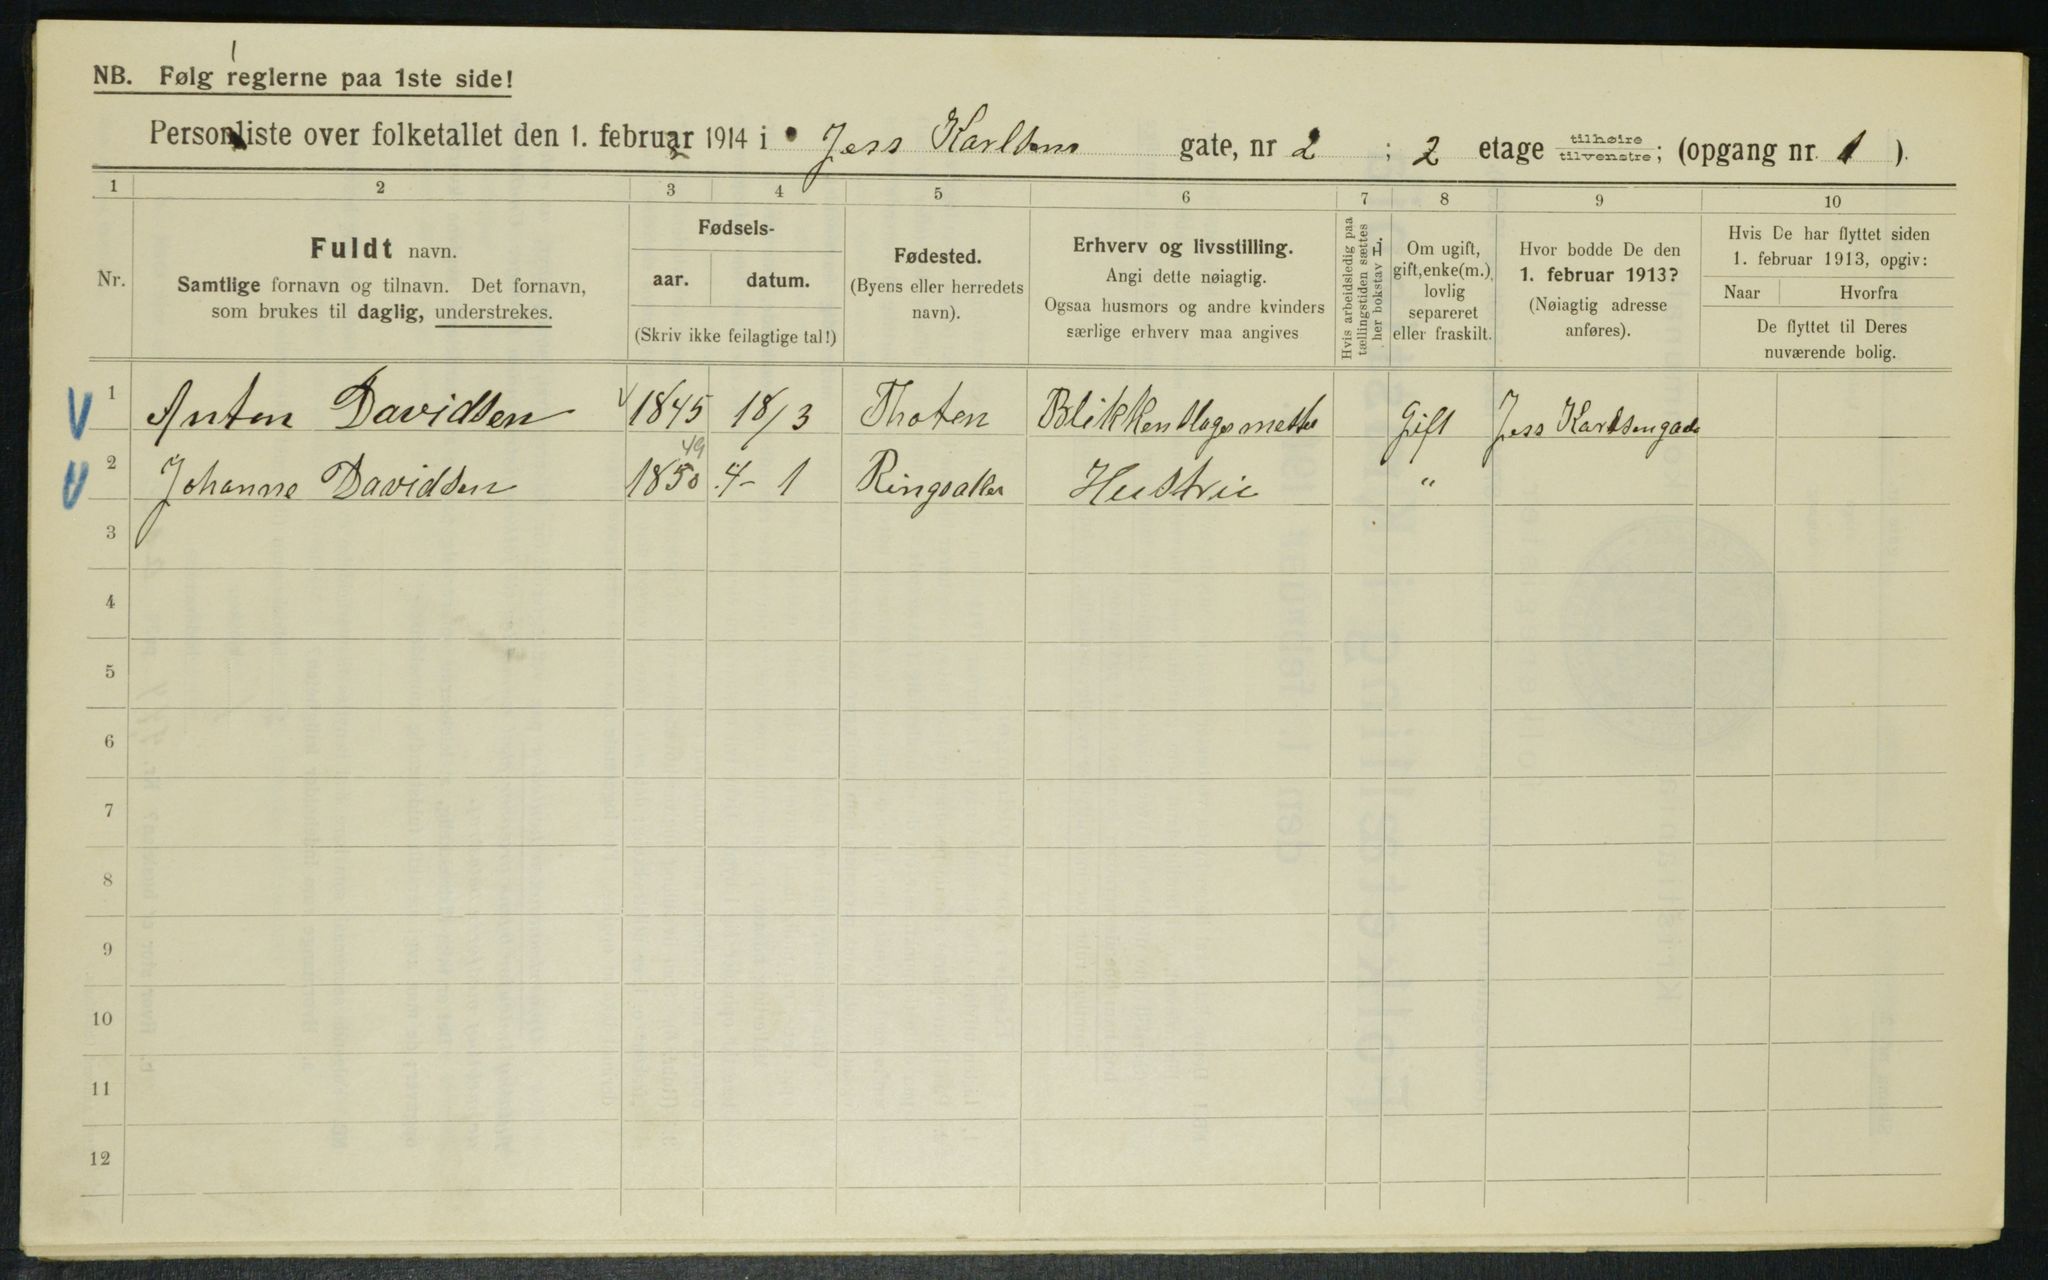 NB. Følg reglerne paa 1ste side!
Personliste over folketallet den 1. februar 1914 i Jess Karlsens gate, nr 2 ; 2 etage tilhøire tilvenstre; (opgang nr. 1 ).
1 2 3 4 5 6 7 8 9 10
Nr.
Fuldt navn.
Samtlige fornavn og tilnavn. Det fornavn,
som brukes til daglig, understrekes.
Fødsels-
aar. datum.
(Skriv ikke feilagtige tal!)
Fødested.
(Byens eller herredets
navn).
Erhverv og livsstilling.
Angi dette nøiagtig.
Ogsaa husmors og andre kvinders
særlige erhverv maa angives
Hvis arbeidsledig paa
tællingstiden sættes
her bokstav L.
Om ugift,
gift, enke(m.),
lovlig
separeret
eller fraskilt.
Hvor bodde De den
1. februar 1913?
(Nøiagtig adresse
anføres).
Hvis De har flyttet siden
1. februar 1913, opgiv:
Naar Hvorfra
De flyttet til Deres
nuværende bolig.
1 Anton Davidsen 1845 18/3 Thoten Gift Jess Karlsengade
49
2 Johanne Davidsen 1850 4-1 Ringsaker Hustru "
3
4
5
6
7
8
9
10
11
12